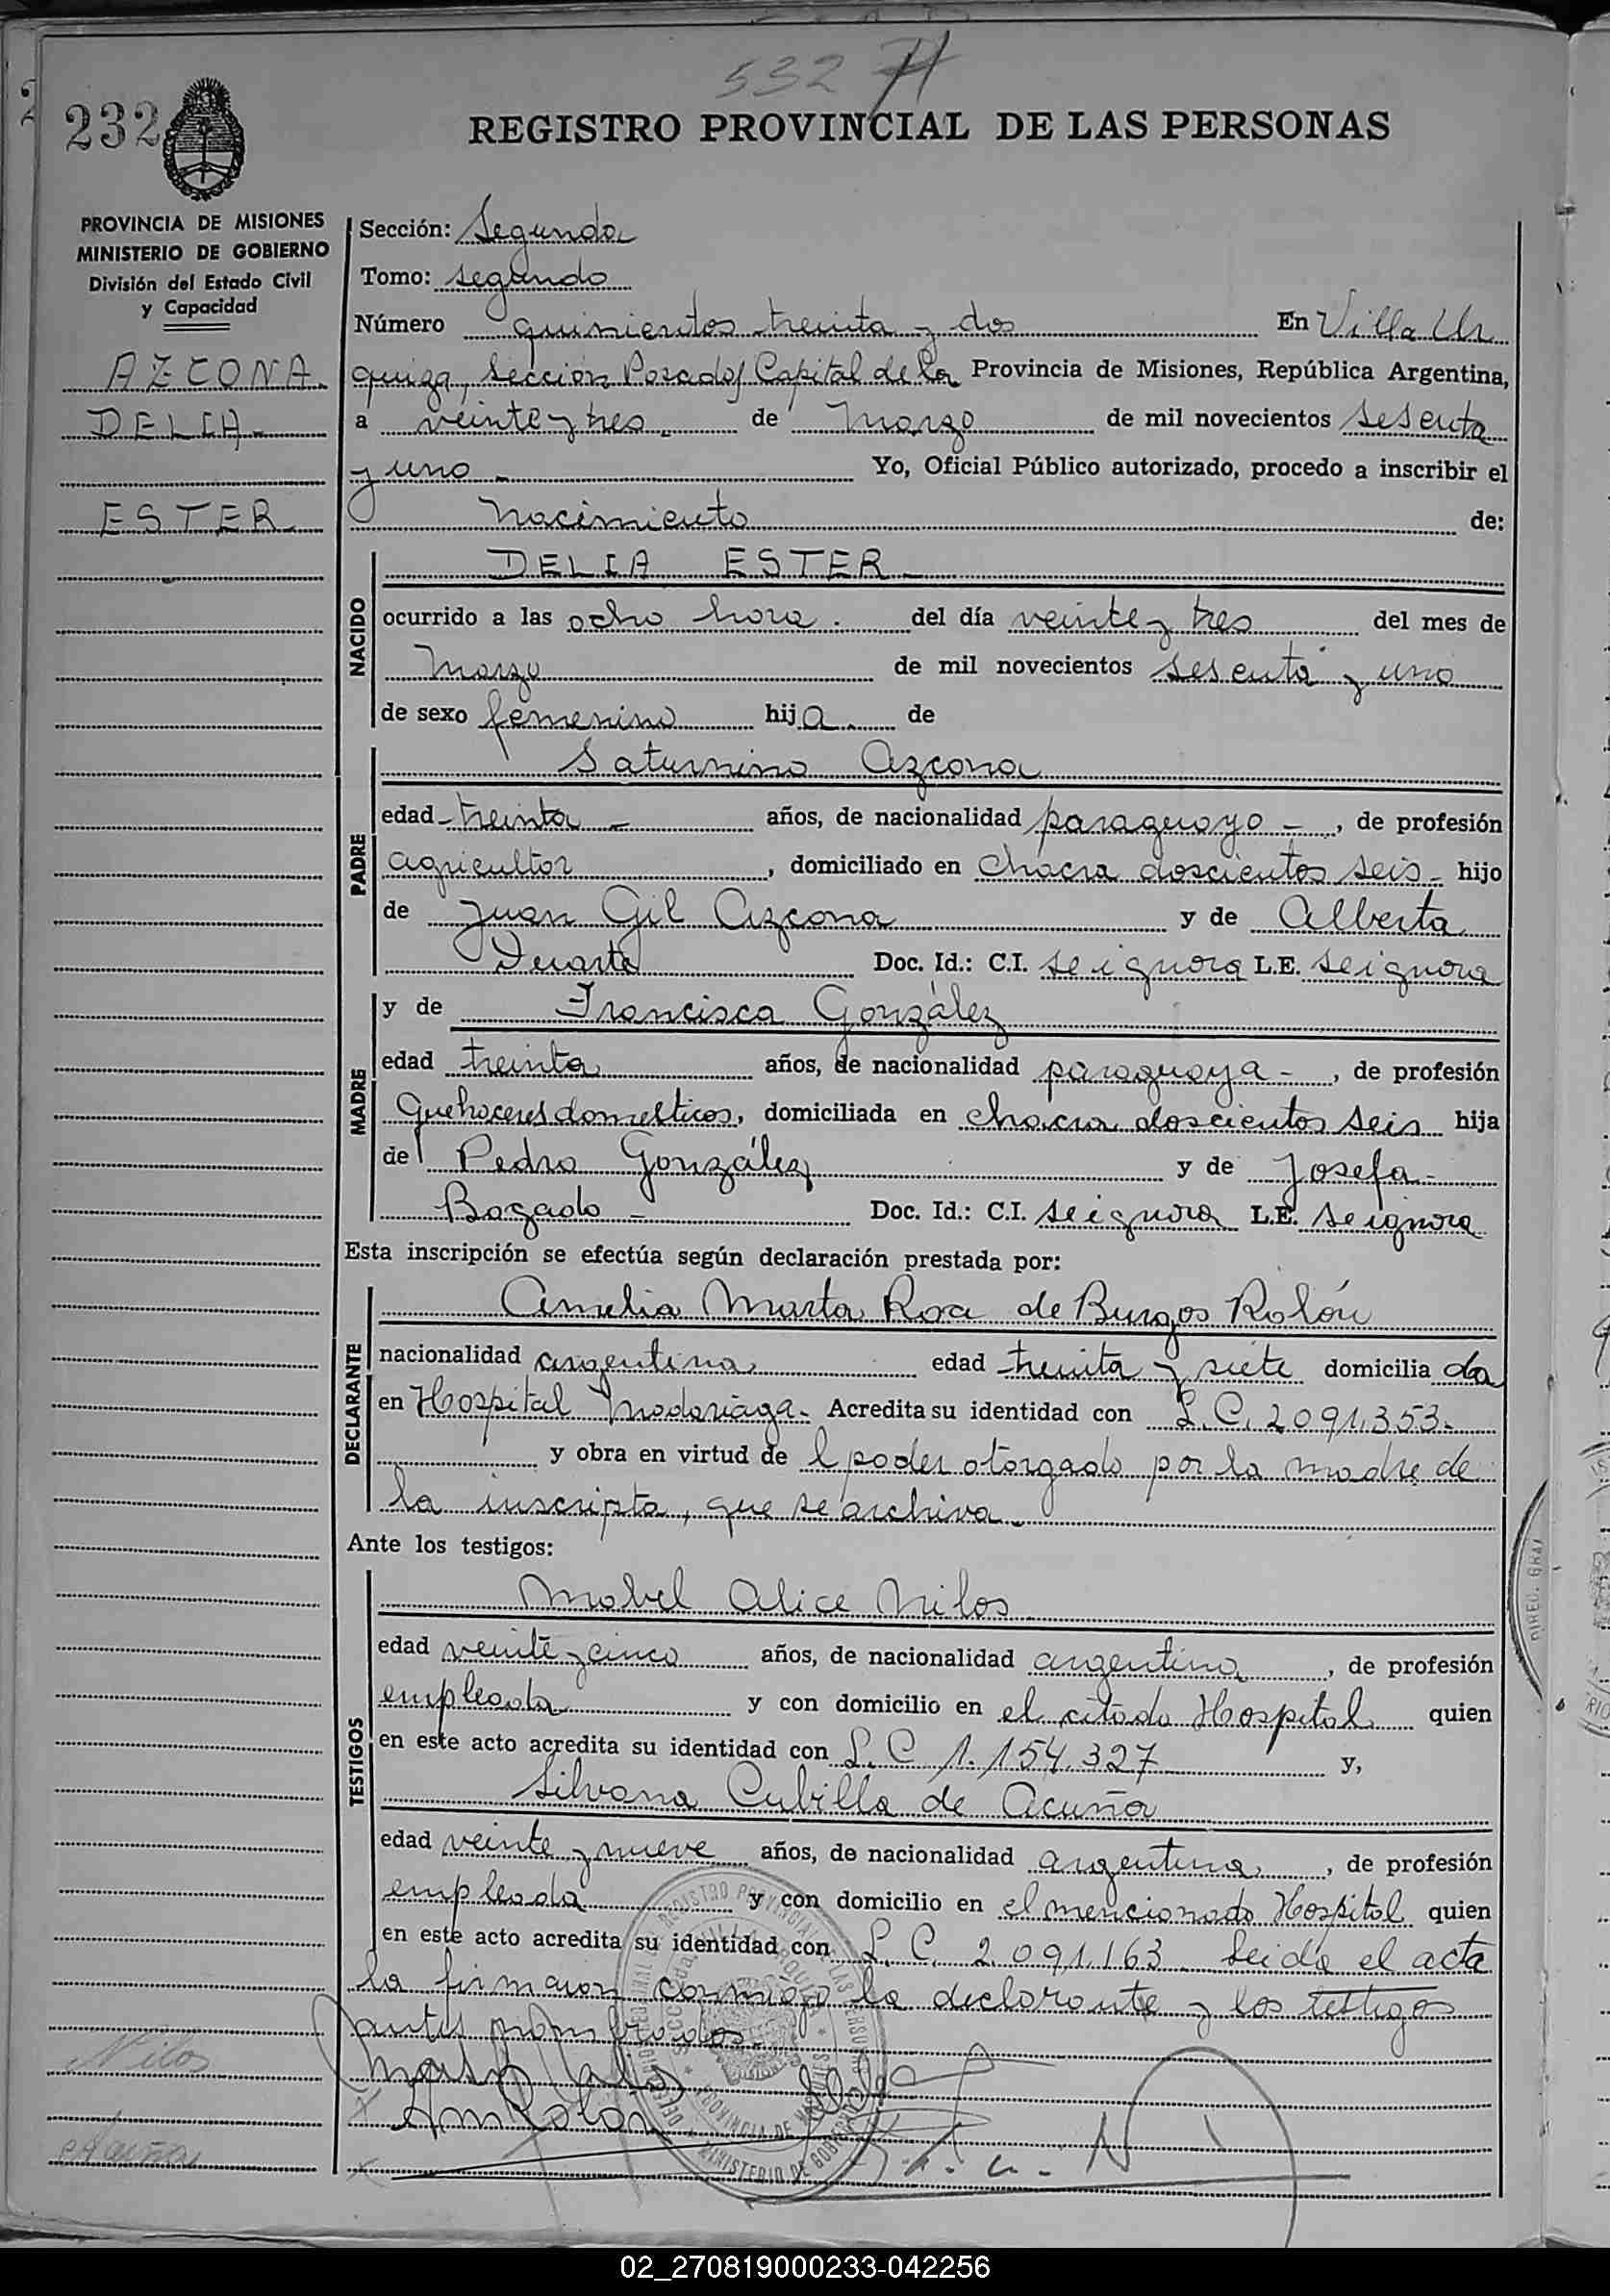 532
232
REGISTRO PROVINCIAL DE LAS PERSONAS
PROVINCIA DE MISIONES
MINISTERIO DE GOBIERNO
División del Estado Civil
y Capacidad
AZCONA.
DELIA-
ESTER-
Sección: Segunda
Tomo: segundo
Número quinientos treinta y dos En Villa Ur
quiza, Sección Posadas Capital de la Provincia de Misiones, República Argentina,
a veinte y tres- de Marzo de mil novecientos sesenta
y uno- Yo, Oficial Público autorizado, procedo a inscribir el
Nacimiento de:
NACIDO
DELIA ESTER-
ocurrido a las ocho hora. del día veinte y tres del mes de
Marzo de mil novecientos sesenta y uno
de sexo femenino hija. de
PADRE
Saturnino Azcona
edad treinta - años, de nacionalidad paraguayo -, de profesión
agricultor, domiciliado en chacra doscientos seis- hijo
de Juan Gil Azcona y de Alberta
Duarte Doc. Id.: C.I. se ignora L.E. se ignora
MADRE
y de Francisca González
edad treinta años, de nacionalidad paraguaya -, de profesión
Quehaceres domesticos, domiciliada en chacra doscientos seis hija
de Pedro González y de Josefa-
Bogado - Doc. Id.: C.I. se ignora L.E. se ignora
Esta inscripción se efectúa según declaración prestada por:
DECLARANTE
Amelia Marta Roa de Burgos Rolón
nacionalidad argentina edad treinta y siete domicilia da
en Hospital Madariaga- Acredita su identidad con L.C. 2.091.353-
y obra en virtud de l poder otorgado por la madre de
la inscripta, que se archiva.
Ante los testigos:
TESTIGOS
Mabel Alice Nilos
edad veinte y cinco años, de nacionalidad argentina, de profesión
empleada y con domicilio en el citado Hospital quien
en este acto acredita su identidad con L.C 1.154.327 y,
Silvana Cubilla de Acuña
edad veinte y nueve años, de nacionalidad argentina, de profesión
empleada y con domicilio en el mencionado Hospital quien
en este acto acredita su identidad con L.C. 2.091.163. Leida el acta
la firmaron conmigo la declarante y los testigos
antes nombrados.
Nilos
Acuña
02_270819000233-042256